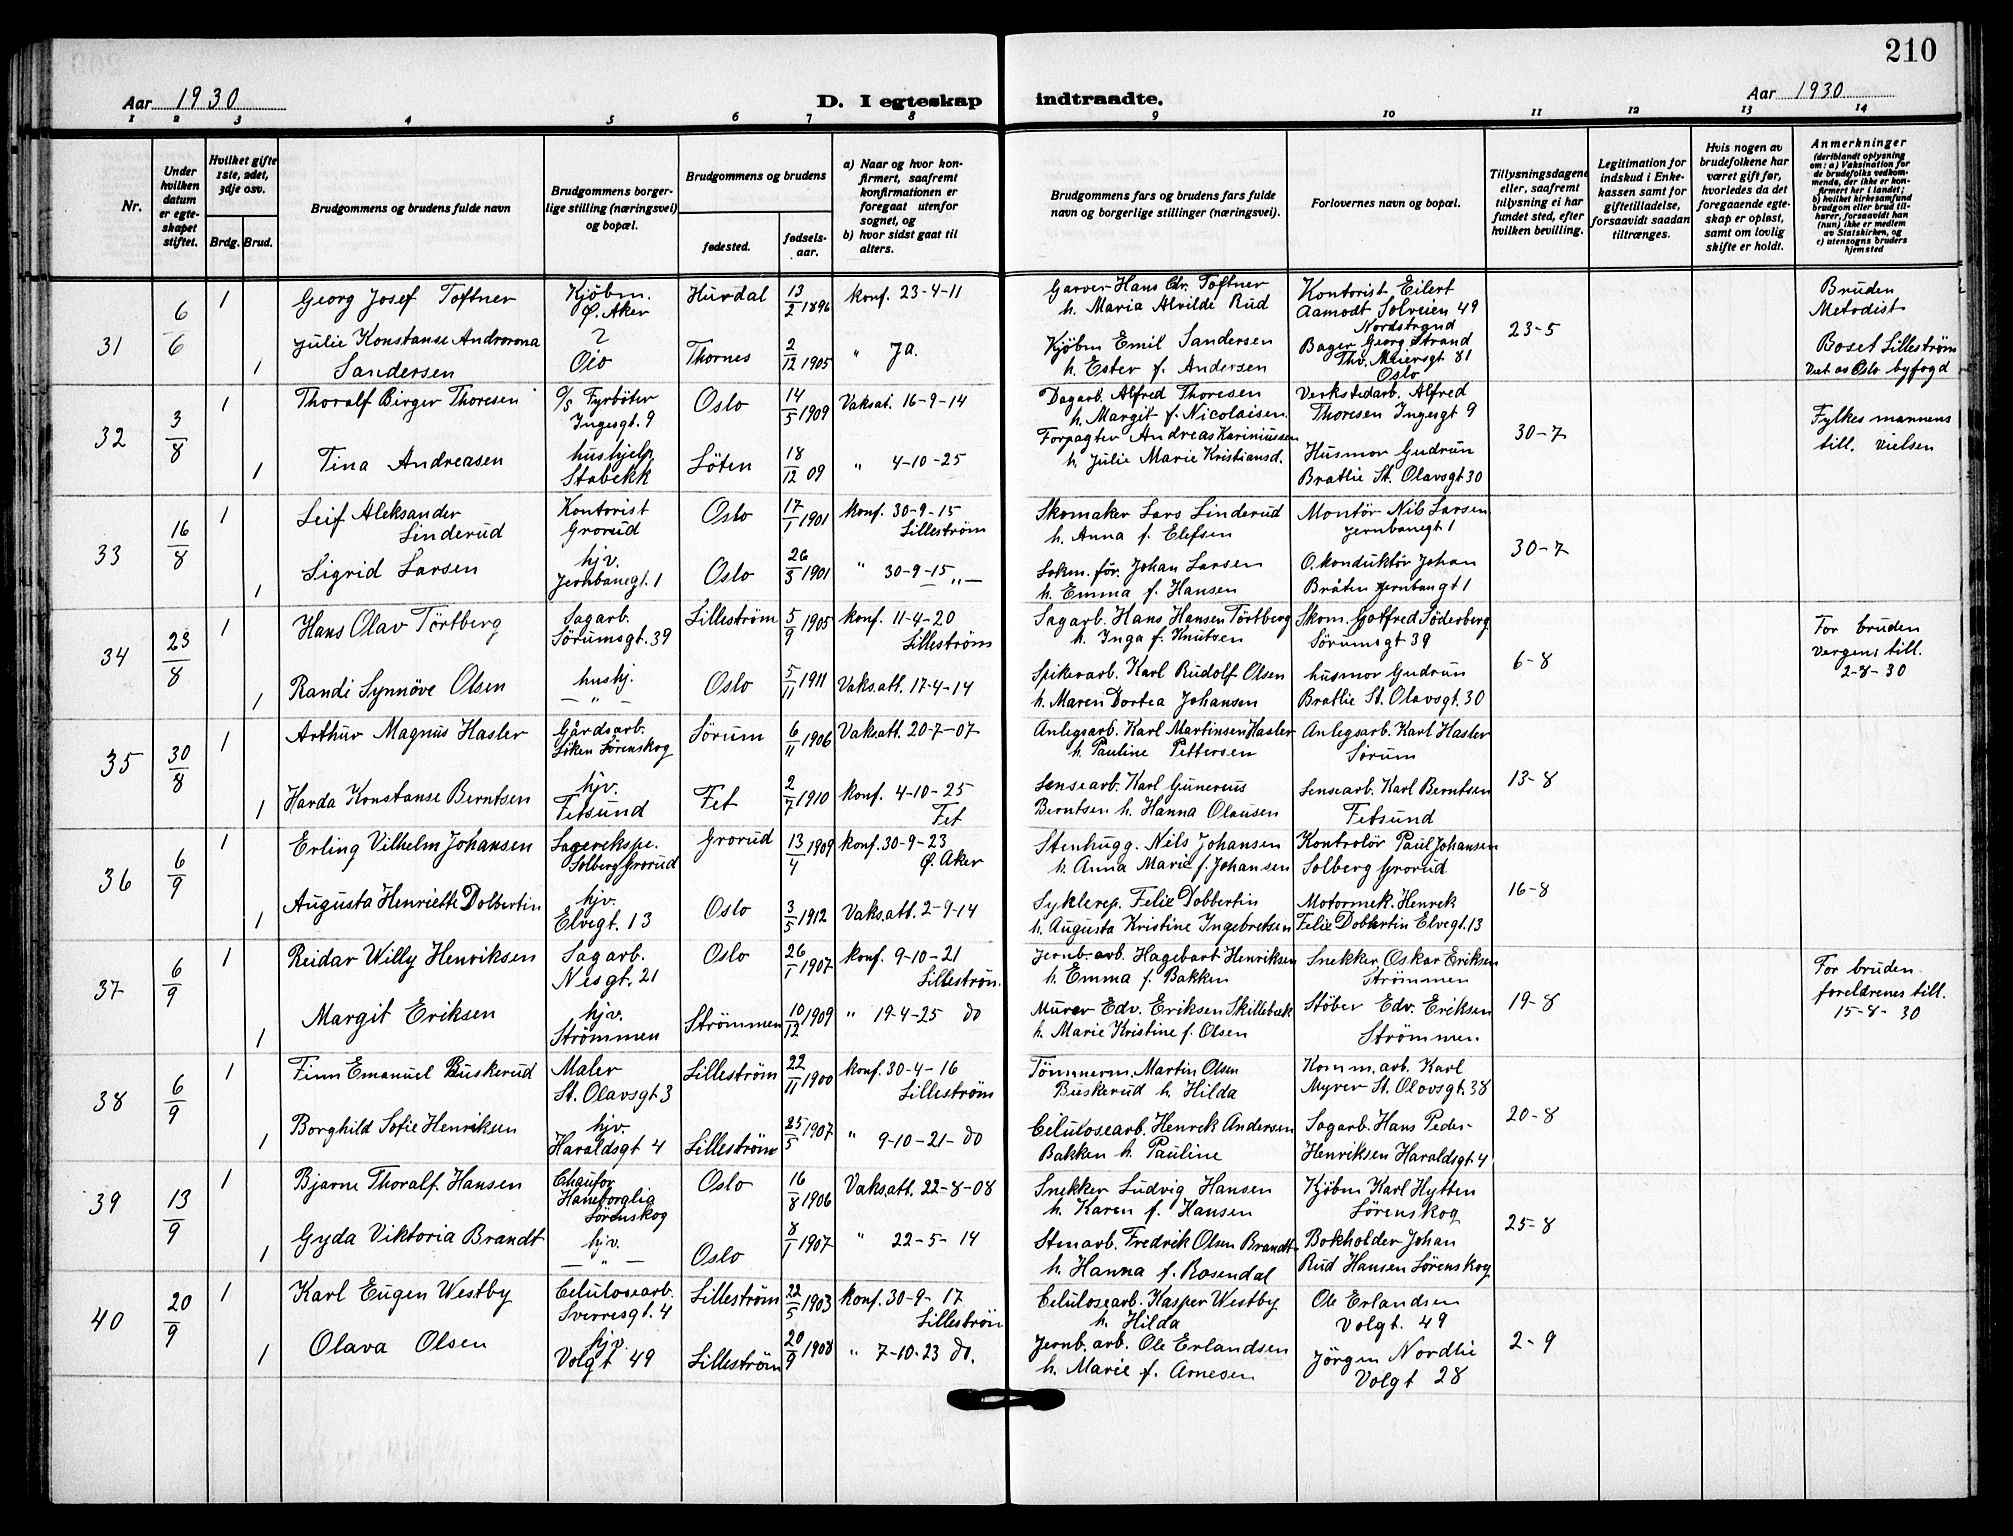 210
Aar 1930
D. I egteskap
indtraadte.
Aar 1930
1 2 3 4 5 6 7 8 9 10 11 12 13 14
Nr.
Under hvilken datum er egteskapet stiftet.
Hvilket gifte 1ste, 2det, 3dje osv.
Brdg. Brud.
Brudgommens og brudens fulde navn
Brudgommens borgerlige stilling (næringsvei) og bopæl.
Brudgommens og brudens
fødested.
fødselsaar.
a) Naar og hvor konfirmert, saafremt konfirmationen er foregaat utenfor sognet, og
b) hvor sidst gaat til alters.
Brudgommens fars og brudens fars fulde navn og borgerlige stillinger (næringsvei).
Forlovernes navn og bopæl.
Tillysningsdagene eller, saafremt tillysning ei har fundet sted, efter hvilken bevilling.
Legitimation for indskud i Enkekassen samt for giftetilladelse, forsaavidt saadan tiltrænges.
Hvis nogen av brudefolkene har været gift før, hvorledes da det foregaaende egteskap er opløst, samt om lovlig skifte er holdt.
Anmerkninger
(deriblandt oplysning om: a) Vaksination for de brudefolks vedkommende, der ikke er konfirmert her i landet; b) hvilket kirkesamfund brudgom eller brud tilhører, forsaavidt han (hun) ikke er medlem av Statskirken, og c) utensogns bruders hjemsted
31 6/6 1 Georg Josef Toftner Kjøbm. Ø. Aker Hurdal 13/2 1896 Konf. 23-4-11 Garver Hans Chr. Toftner h. Maria Alvilde Rud Kontorist Eilert Aamodt Solveien 49 Nordstrand 23-5 Bruden Metodist
1 Julie Konstanse Sandersen ? Oslo Thornes 2/12 1905 " Ja. Kjøbm Emil Sandersen h. Ester f. Andersen Bager Georg Strand Thv. Meiersgt 81 Oslo Boset Lilleström Viet av Oslo byfogd
32 3/8 1 Thoralf Birger Thoresen Fyrböter Ingesgt. 9 Oslo 14/5 1909 Vaksat. 16-9-14 Dagarb. Alfred Thoresen h. Margit f. Nicolaisen Verkstedarb. Alfred Thoresen Ingesgt 9 30-7 Fylkesmannens till. vielsen
1 Tina Andreasen hushjelp Stabekk Löten 18/12 09 " 4-10-25 Forpagter Andreas Kariniussen h. Julie Marie Kristiansd. Husmor Gudrun Bratlie St. Olavsgt 30
33 16/8 1 Leif Aleksander Linderud Kontorist Grorud Oslo 17/1 1901 Konf. 30-9-15 Lilleström Skomaker Lars Linderud h. Anna f. Elefsen Montör Nils Larsen Jernbanegt 1 30-7
1 Sigrid Larsen hjv. Jernbanegt. 1 Oslo 26/3 1901 " 30-9-15 " Lokm.för. Johan Larsen h. Emma f. Hansen O.konduktör Johan Bråten Jernbangt 1
34 23/8 1 Hans Olav Törtberg Sagarb. Sörumsgt. 39 Lilleström 5/9 1905 Konf. 11-4-20 Lilleström Sagarb. Hans Hansen Törtberg h. Inga f. Knutsen Skom. Gotfred Söderberg Sörumsgt 39 6-8 For bruden vergens till. 2-8-30
1 Randi Synnöve Olsen hushj. — " — Oslo 5/11 1911 Vaks.att. 17-4-14 Spikerarb. Karl Rudolf Olsen h. Maren Dortea Johansen husmor Gudrun Bratlie St. Olavsgt. 30
35 30/8 1 Arthur Magnus Hasler Gårdsarb. Sörenskog Sörum 6/11 1906 Vaksatt. 20-7-07 Anlegsarb. Karl Martinsen Hasler h. Pauline Pettersen Anlegsarb. Karl Hasler Sörum 13-8
1 Harda Konstanse Berntsen hjv. Fetsund Fet 2/7 1910 Konf. 4-10-25 Fet Lensearb. Karl Gunerius Berntsen h. Hanna Olausen Lensearb. Karl Berntsen Fetsund
36 6/9 1 Erling Vilhelm Johansen Solberg Grorud Grorud 13/4 1909 Konf. 30-9-23 Ø. Aker Stenhugg. Nils Johansen h. Anna Marie f. Johansen Kontrolör Paul Johansen Solberg Grorud 16-8
1 Augusta Henriette Dolbertin hjv. Elvegt. 13 Oslo 3/5 1912 Vaks.att. 2-9-14 Syklerep. Felix Dobbertin h. Augusta Kristine Ingebretsen Motormek. Henrek Felix Dobbertin Elvegt. 13
37 6/9 1 Reidar Willy Henriksen Sagarb. Nesgt. 21 Oslo 26/1 1907 Konf. 9-10-21 Lilleström. Jernb.arb. Hagebart Henriksen h. Emma f. Bakken Snekker Oskar Eriksen Strömmen 19-8 For bruden foreldrenes till. 15-8-30
1 Margit Eriksen hjv. Strömmen Strömmen 10/12 1909 " 19-4-25 do Murer Edv. Eriksen Skillebæk h. Marie Kristine f. Olsen Stöber Edv. Eriksen Strömmen
38 6/9 1 Finn Emanuel Buskerud Maler St. Olavsgt 3 Lilleström 22/11 1900 Konf. 30-4-16 Lilleström Tömmerm. Martin Olsen Buskerud h. Hilda Komm.arb. Karl Myrer St. Olavsgt. 38 20-8
1 Borghild Sofie Henriksen hjv. Haraldsgt 4 Lilleström 25/5 1907 " 9-10-21- do Celulosearb. Henrek Andersen Bakken h. Pauline Sagarb. Hans Peder Henriksen Haraldsgt. 4
39 13/9 1 Bjarne Thoralf Hansen Chaufør Haneborglia Sörenskog Oslo 16/8 1906 Vaks.att. 22-8-08 Snekker Ludvig Hansen h. Karen f. Hansen Kjöbm Karl Hytten Sörenskog 25-8
1 Gyda Viktoria Brandt hjv. — " — Oslo 8/1 1907 " 22-5-14 Stenarb. Fredrik Olsen Brandt h. Hanna f. Rosendal Bokholder Johan Rud Hansen Sörenskog
40 20/9 1 Karl Eugen Westby Celulosearb. Sverresgt. 4 Lilleström 22/5 1903 Konf. 30-9-17 Lilleström Celulosearb. Kasper Westby h. Hilda Ole Erlandsen Volgt. 49 2-9
1 Olava Olsen hjv. Volgt 49 Lilleström 20/9 1908 " 7-10-23 do. Jernb.arb. Ole Erlandsen h. Marie f. Arnesen Jörgen Nordlie Volgt 28